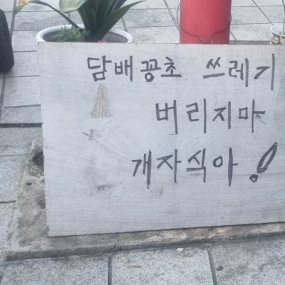 담배꽁초 쓰레기
버리지마
개자식아!